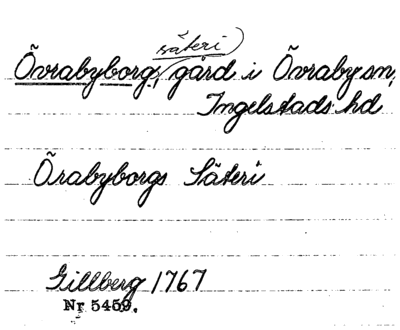 säteri)
Övrabyborgs, gård i Övraby sn,
Ingelstads hd
Örabyborgs Säteri
Gillberg 1767
Nr 5459.